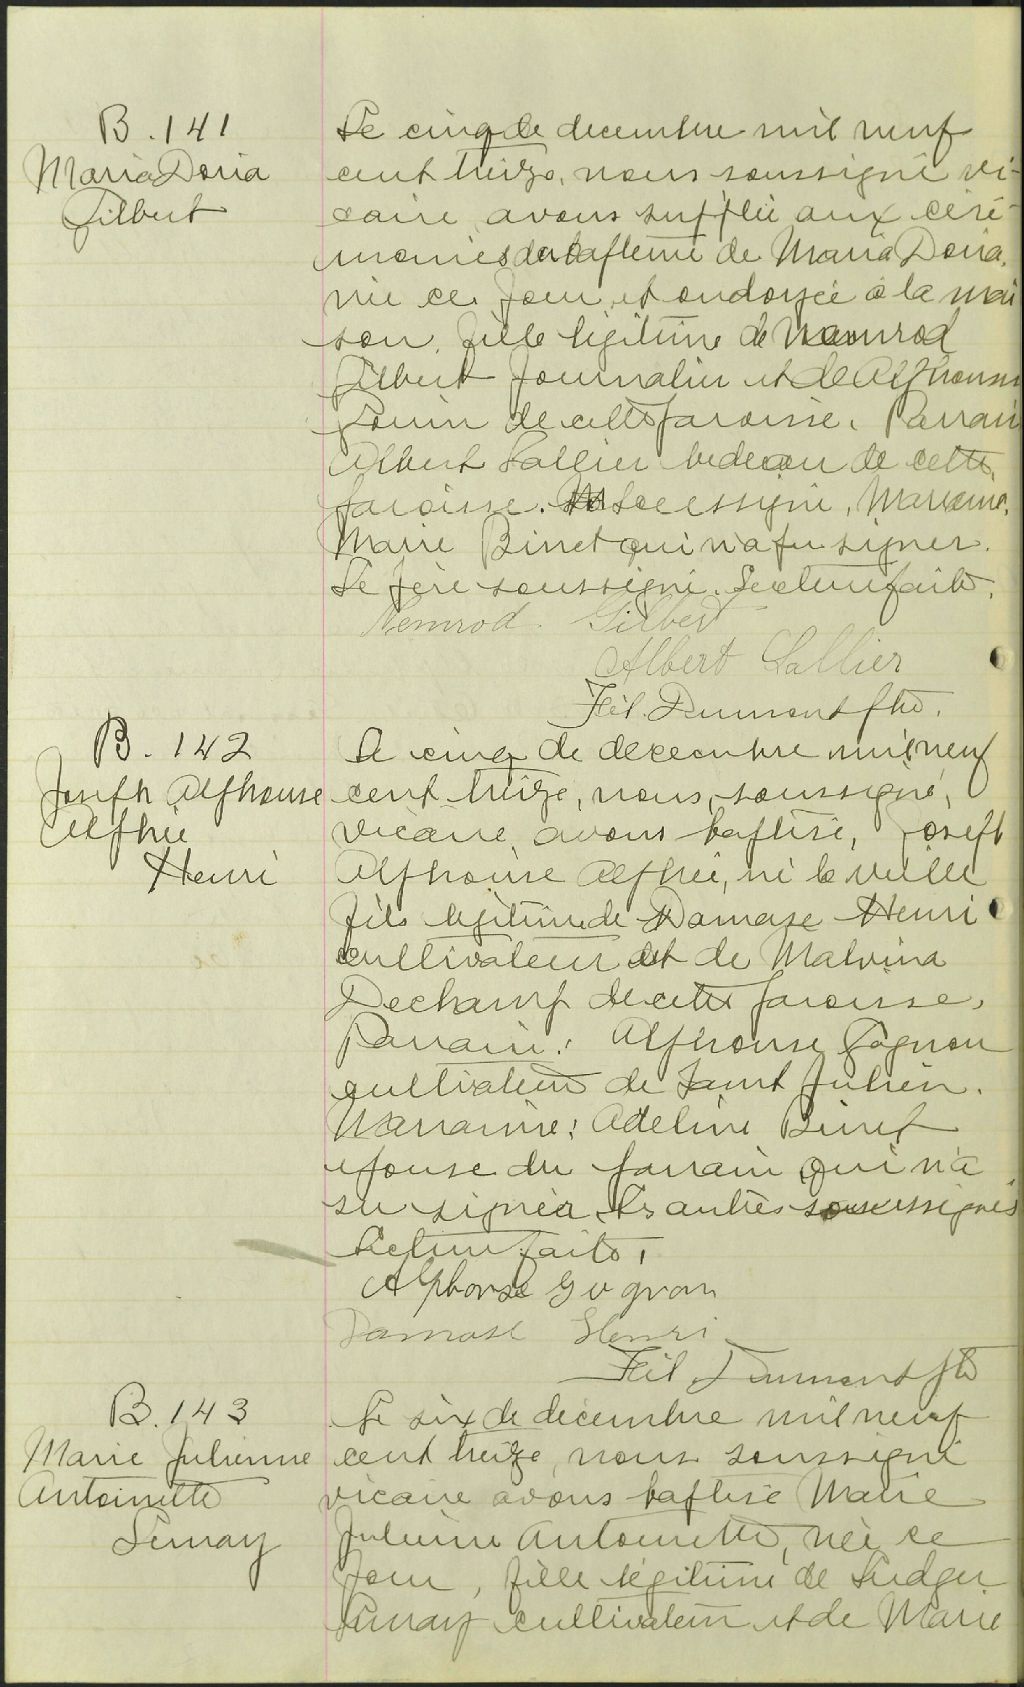 B. 141
Maria Doria
Gilbert
Le cinq de decembre mil neuf
cent treize, nous soussigné vi-
caire avons supplié aux céré-
monies du baptême de Maria Doria,
née ce jour et ondoyée à la mai
son, fille légitime de Nemrod
Gilbert journalier et de Alphonsine
de cette paroisse. Parrain
Albert Lallier bedeau de cette
paroisse. soussigné, Marraine,
Marie Binet qui n'a pu signer.
Le père soussigné. Lecture faite.
Nemrod Gilbert
Albert Lallier
Fél. Dumont ptre.
B. 142
Joseph Alphonse
Alphée
Henri
Le cinq de decembre mil neuf
cent treize, nous, soussigné,
vicaire, avons baptisé, Joseph
Alphonse Alphée, né la veille
fils légitime de Damase Henri
cultivateur et de Malvina
Dechamp de cette paroisse,
Parrain: Alphonse Gagnon
cultivateur de Saint Julien.
Marraine: Adeline Binet
épouse du parrain qui n'a
su signer, les autres soussignés
Lecture faite,
Alphonse Gagnon
Damase Henri
Fél Dumont ptre
B. 143
Marie Julienne
Antoinette
Lemay
Le six de décembre mil neuf
cent treize, nous soussigné
vicaire avons baptisé Marie
Julienne Antoinette, née ce
jour, fille légitime de Ludger
Lemay cultivateur et de Marie